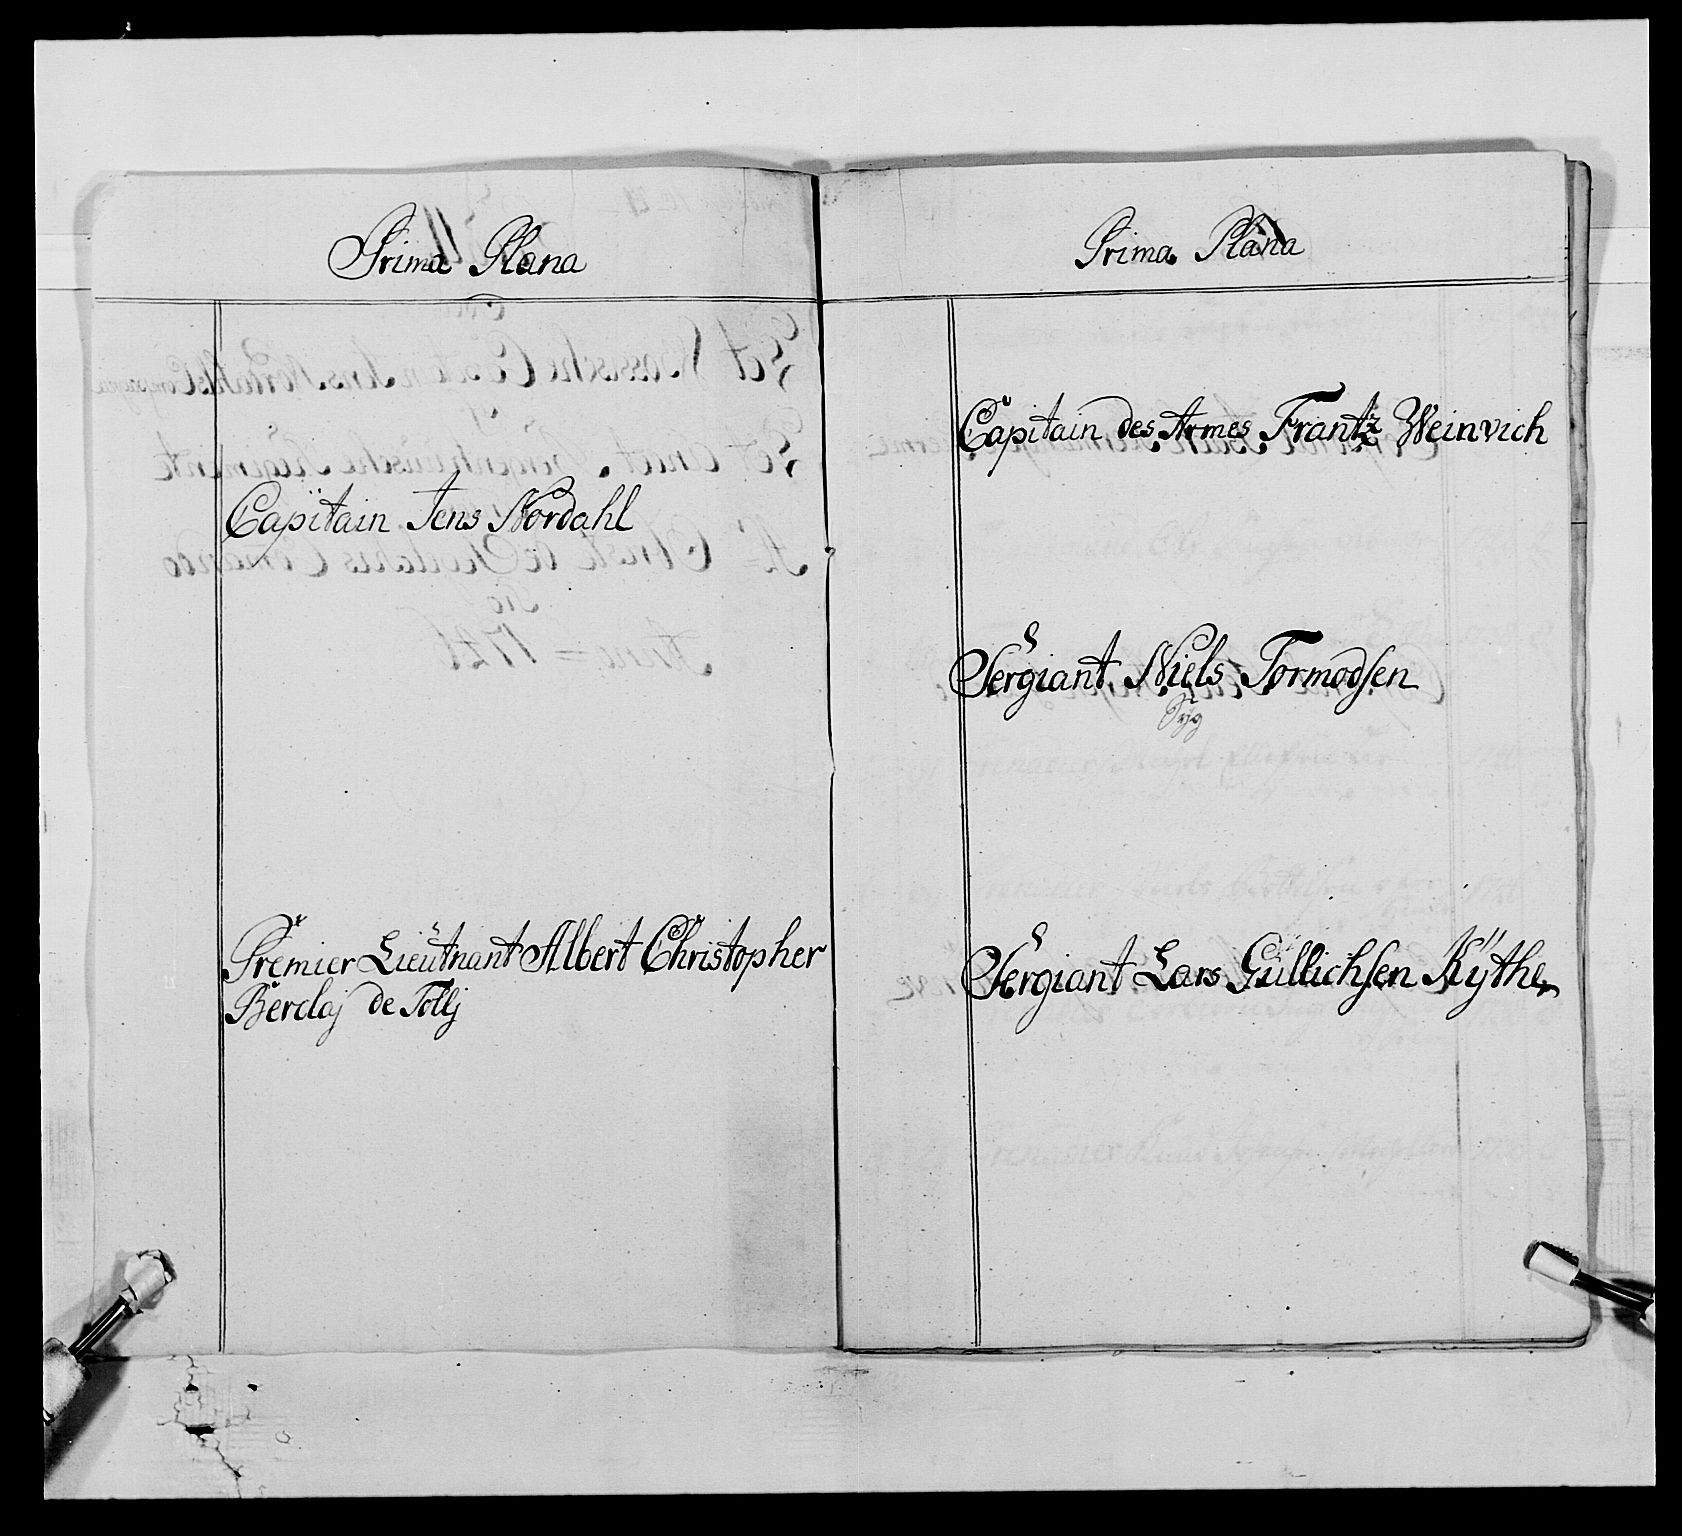 Prima Plana
Capitain Jens Nordahl
Premier Lieütnant Albert Christopher
Berclaj de Tollj
Prima Plana
Capitain des Armes Frantz Weinvich
Sergiant Niels Tormodsen
Sÿg
Sergiant Lars Güllichsen Kÿthe